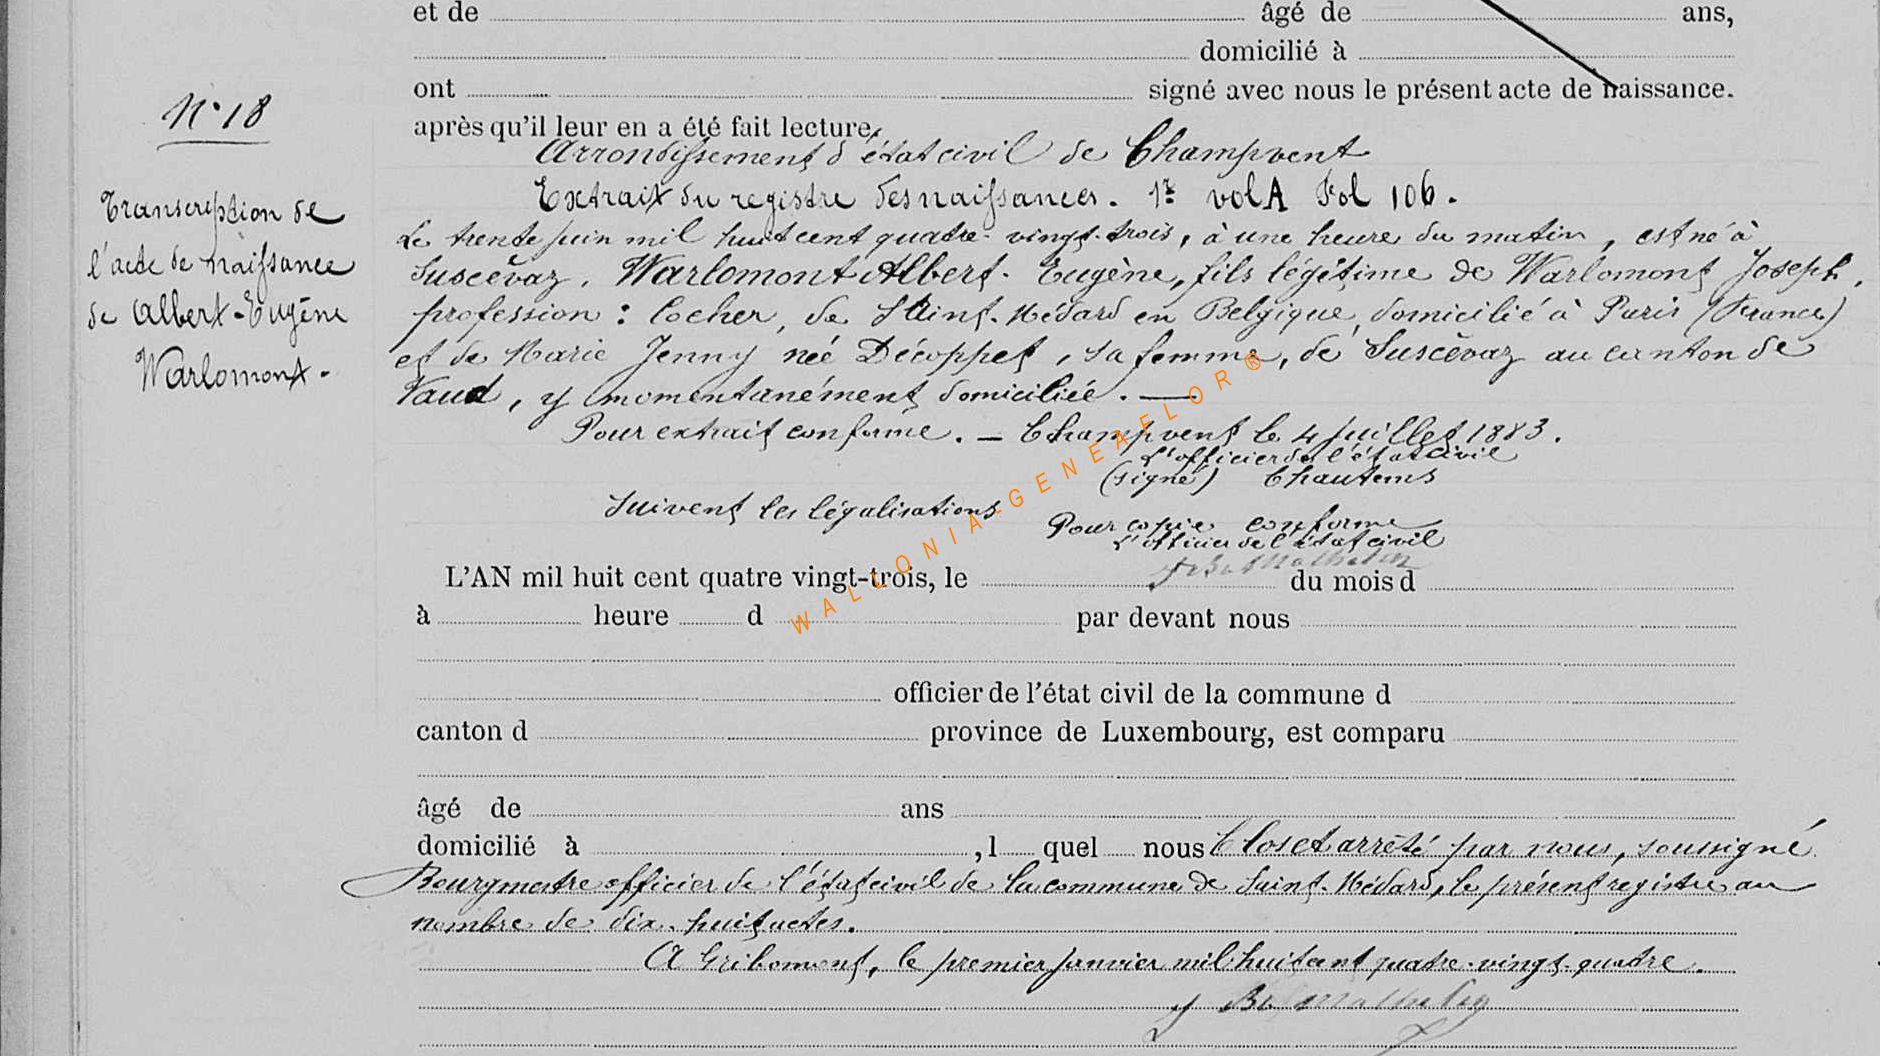 et de âgé de ans,
domicilié à
ont signé avec nous le présent acte de naissance.
après qu'il leur en a été fait lecture.
N° 18
Transcription de
l'acte de naissance
de Albert-Eugène
Warlomont.
Arrondissement d'état civil de Champvent
Extrait du registre des naissances. 1r vol A Fol 106.
Le trente juin mil huit cent quatre-vingt-trois, à une heure du matin, est né à
Suscévaz, Warlomont Albert-Eugène, fils légitime de Warlomont Joseph,
profession : Cocher, de Saint-Médard en Belgique, domicilié à Paris (France)
et de Marie Jenny née Décoppet, sa femme, de Suscévaz au canton de
Vaud, y momentanément domiciliée. —
Pour extrait conforme. — Champvent le 4 Juillet 1883.
L'officier de l'état civil
(signé) Chautems
Suivent les légalisations
Pour copie conforme
L'officier de l'état civil
WALLONIA-GENEAFLOR®
L'AN mil huit cent quatre vingt-trois, le du mois d
à heure d par devant nous
officier de l'état civil de la commune d
canton d province de Luxembourg, est comparu
âgé de ans
domicilié à , l quel nous Clos et arrêté par nous, soussigné
Bourgmestre officier de l'état civil de la commune de Saint-Médard, le présent registre au
nombre de dix-huit actes.
A Gribomont, le premier janvier mil huit cent quatre-vingt-quatre.